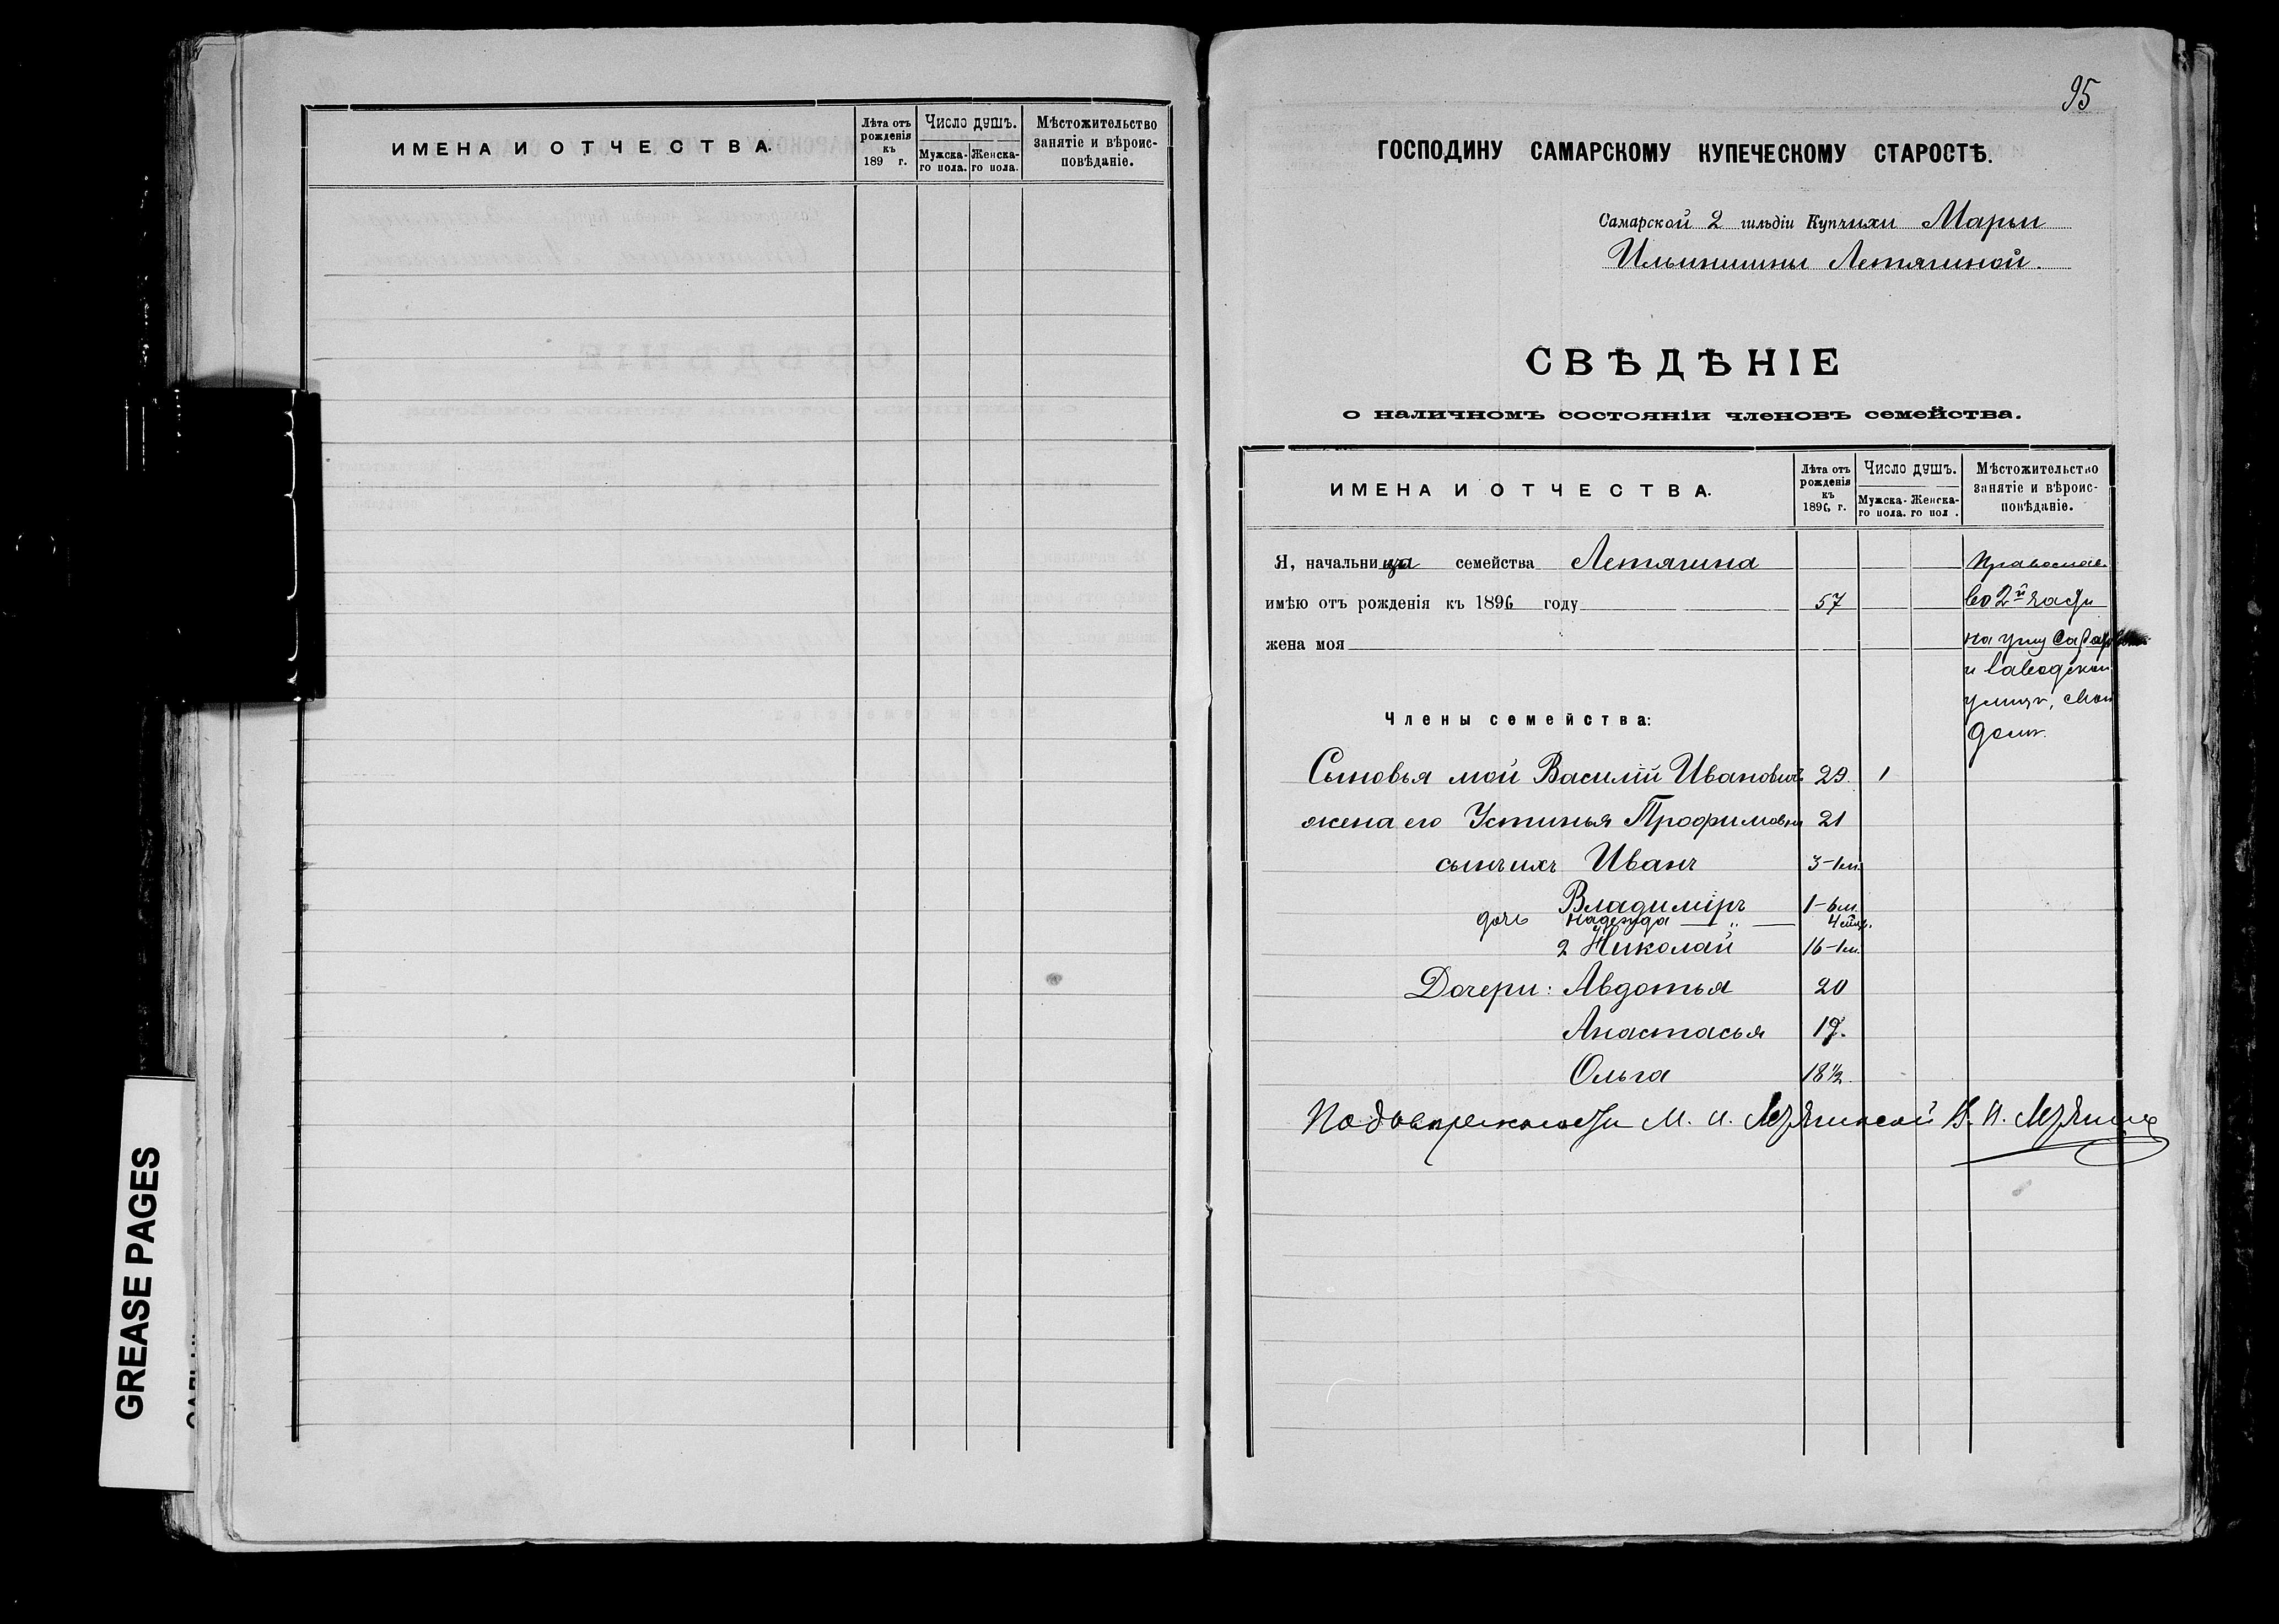 ИМЕНА И ОТЧЕСТВА.
Лѣта отъ рожденія къ 189 г.
Число душъ.
Мужска-го пола.
Женска-го пола.
Мѣстожительство занятіе и вѣроис-повѣданіе.
GREASE PAGES
95
ГОСПОДИНУ САМАРСКОМУ КУПЕЧЕСКОМУ СТАРОСТѢ.
Самарской 2 гильдіи Купчихи Марьи
Ильинишны Летягиной.
СВѢДѢНІЕ
о наличномъ состояніи членовъ семейства.
ИМЕНА И ОТЧЕСТВА.
Лѣта отъ рожденія къ 1896 г.
Число душъ.
Мужска-го пола.
Женска-го пол .
Мѣстожительство занятіе и вѣроис-повѣданіе.
Я, начальница семейства Летягина Православ.
имѣю отъ рожденія къ 1896 году 57 во 2й части
жена моя на углу
и Заводской
улицъ, свой
домъ.
Члены семейства:
Сыновья мой Василій Ивановичъ 29. 1
жена его Устинья Трофимовна 21
сынъ ихъ Иванъ 3-1м.
Владиміръ 1-6м.
дочь Надежда — " —
2 Николай 16-1м.
Дочери: Авдотья 20
Анастасья 19.
Ольга 18½.
По довѣренности М. И. Летягиной В. И. Летягинъ